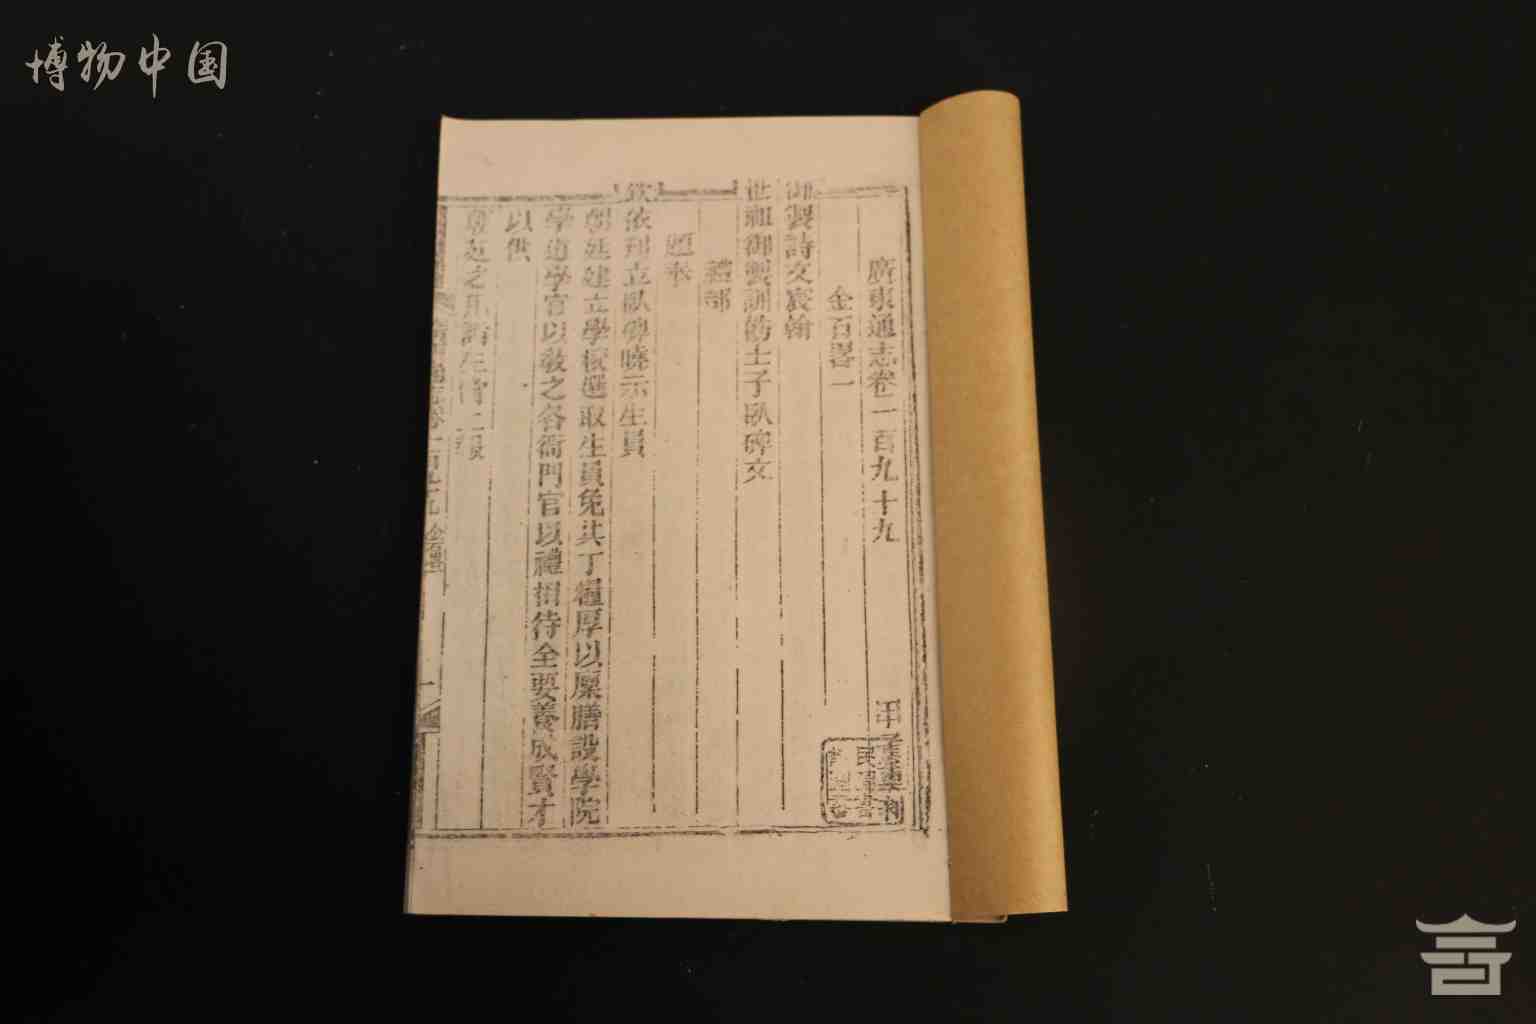 博物中国
廣東通志卷一百九十九
金石畧一
御製詩文宸翰
世祖御製訓飭士子臥碑文
禮部
題奉
欽依刊立臥碑曉示生員
朝廷建立學校選取生員免其丁糧厚以廩膳設學院
學道學官以教之各衙門官以禮相待全要養成賢才
以供
朝廷之用諸生皆當
廣東通志卷一百九十九 金石畧一